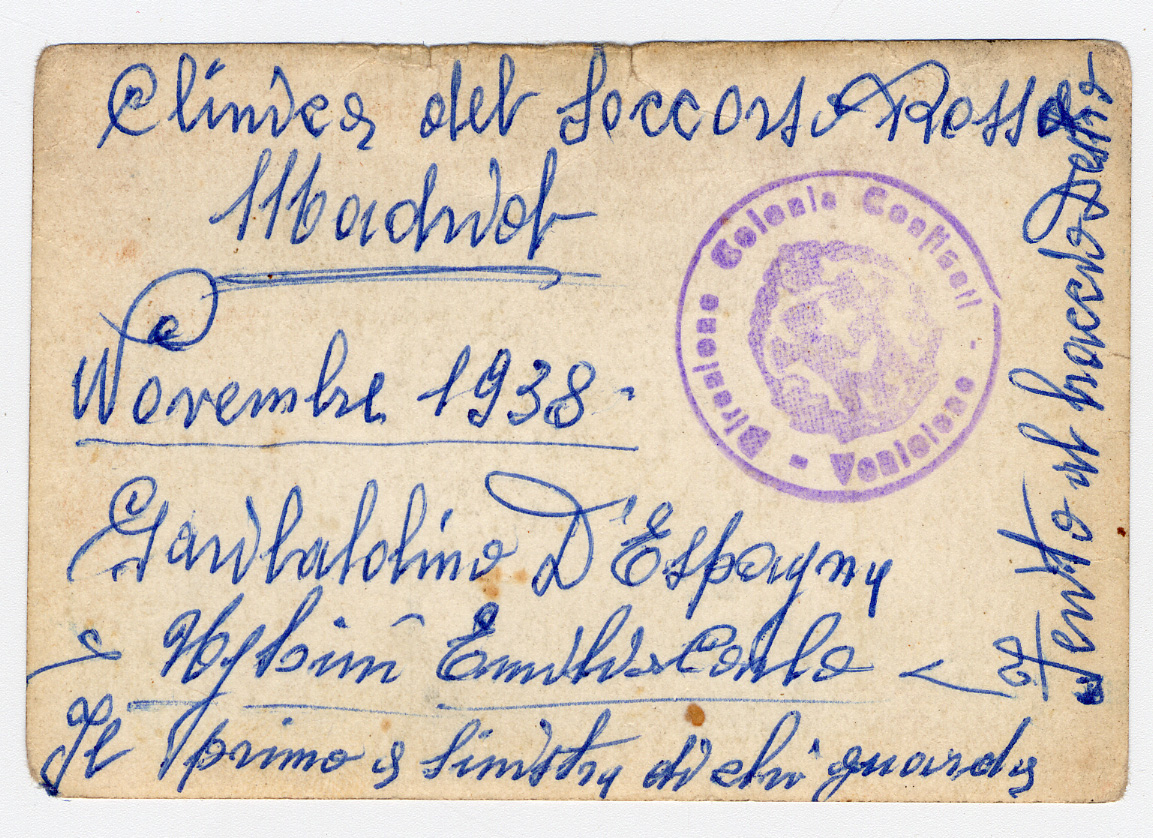 Clinica del Soccorso Rosso
Madrid
Novembre 1938-
Garibaldino D'Espagna
Emilio Carlo
Il primo a sinistra di chi guarda
Ferito al braccio Destro
Direzione Colonia Confinati - Ventotene -